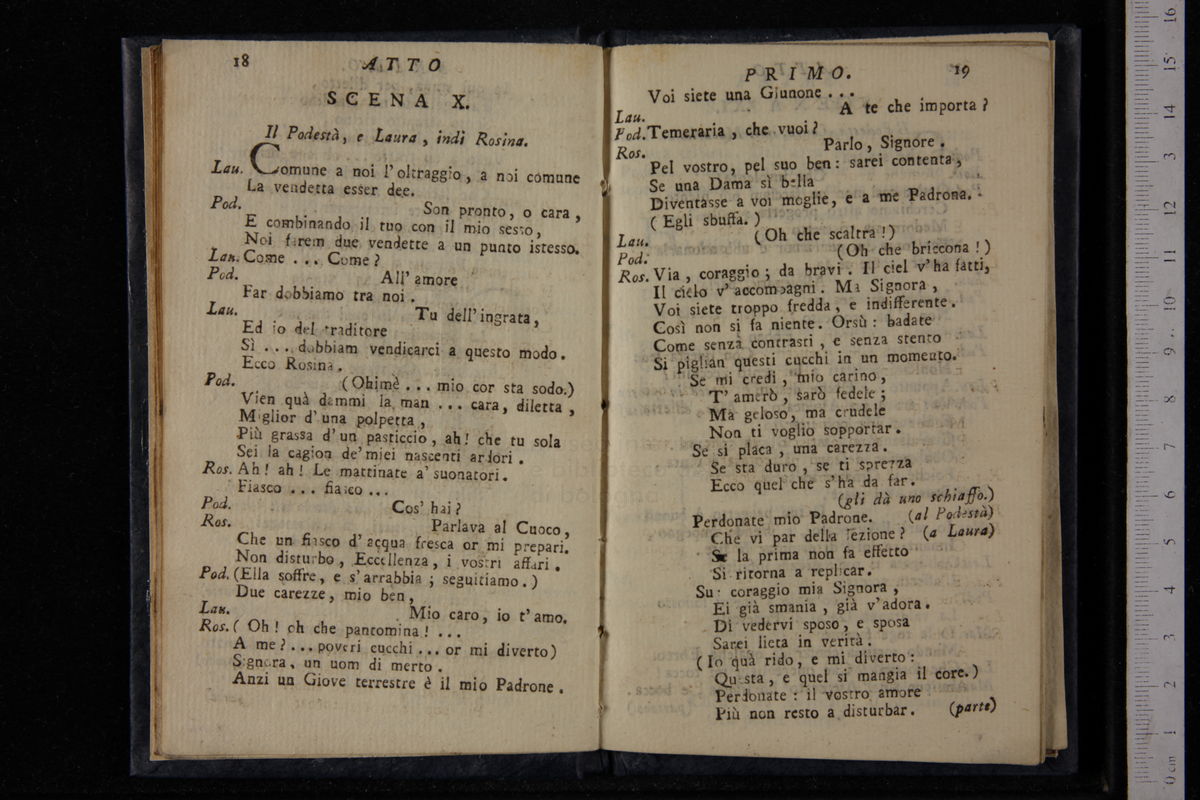 18
ATTO
SCENA X.
Il Podestà, e Laura, indi Rosina.
Lau. Comune a noi l'oltraggio, a noi comune
La vendetta esser dee.
Pod. Son pronto, o cara,
E combinando il tuo con il mio sesso,
Noi farem due vendette a un punto istesso.
Lau. Come ... Come?
Pod. All' amore
Far dobbiamo tra noi.
Lau. Tu dell'ingrata,
Ed io del traditore
Sì ... dobbiam vendicarci a questo modo.
Ecco Rosina.
Pod. (Ohimè ... mio cor sta sodo.)
Vien quà dammi la man ... cara, diletta,
Miglior d'una polpetta,
Più grassa d'un pasticcio, ah! che tu sola
Sei la cagion de' miei nascenti ardori.
Ros. Ah! ah! Le mattinate a' suonatori.
Fiasco ... fiasco ...
Pod. Cos' hai?
Ros. Parlava al Cuoco,
Che un fiasco d'acqua fresca or mi prepari.
Non disturbo, Eccellenza, i vostri affari.
Pod. (Ella soffre, e s'arrabbia; seguitiamo.)
Due carezze, mio ben,
Lau. Mio caro, io t'amo.
Ros. (Oh! oh che pantomina! ...
A me? ... poveri cucchi ... or mi diverto)
Signora, un uom di merto.
Anzi un Giove terrestre è il mio Padrone.
PRIMO.
19
Voi siete una Giunone ...
Lau. A te che importa?
Pod. Temeraria, che vuoi?
Ros. Parlo, Signore.
Pel vostro, pel suo ben: sarei contenta,
Se una Dama sì bella
Diventasse a voi moglie, e a me Padrona.
(Egli sbuffa.)
Lau. (Oh che scaltra!)
Pod. (Oh che briccona!)
Ros. Via, coraggio; da bravi. Il ciel v'ha fatti,
Il cielo v'accompagni. Ma Signora,
Voi siete troppo fredda, e indifferente.
Così non si fa niente. Orsù: badate
Come senza contrasti, e senza stento
Si piglian questi cucchi in un momento.
Se mi credi, mio carino,
T' amerò, sarò fedele;
Ma geloso, ma crudele
Non ti voglio sopportar.
Se si placa, una carezza.
Se sta duro, se ti sprezza
Ecco quel che s'ha da far.
(gli dà uno schiaffo.)
Perdonate mio Padrone. (al Podestà)
Che vi par della lezione? (a Laura)
Se la prima non fa effetto
Si ritorna a replicar.
Su coraggio mia Signora,
Ei già smania, già v'adora.
Di vedervi sposo, e sposa
Sarei lieta in verità.
(Io quà rido, e mi diverto:
Questa, e quel si mangia il core.)
Perdonate: il vostro amore
Più non resto a disturbar. (parte)